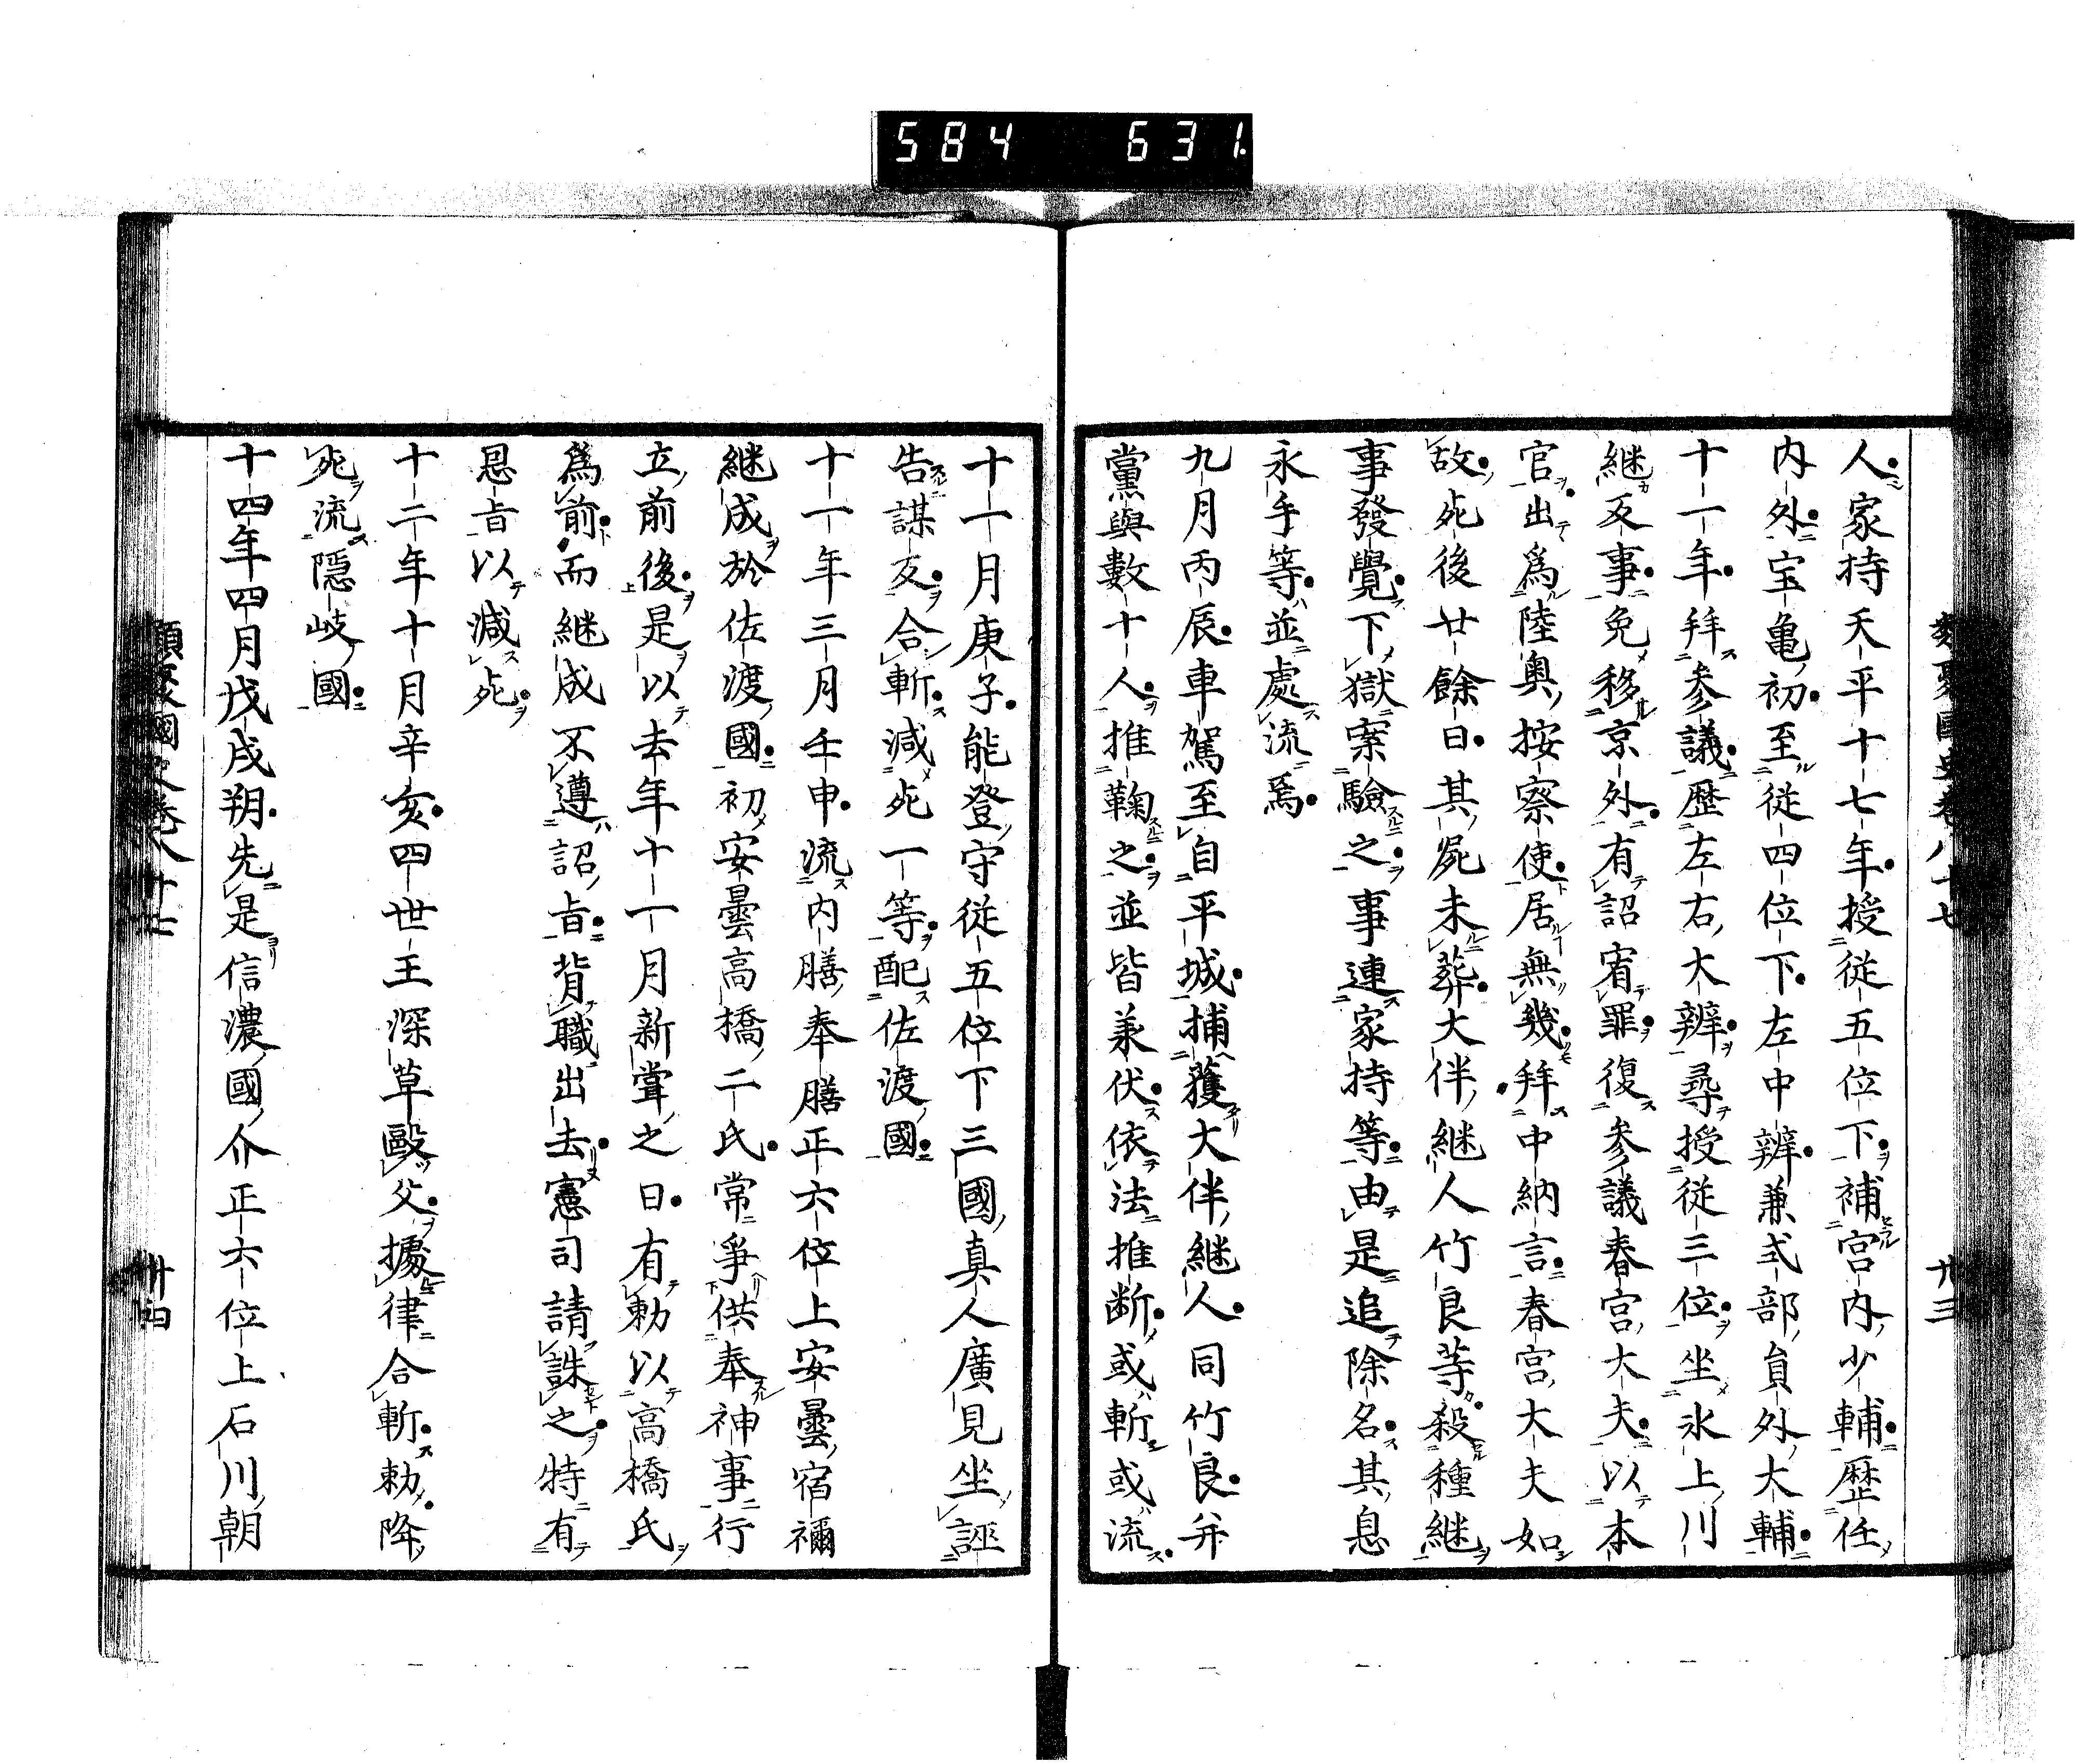 584 631.
類聚國史卷八十七 卅三
人家持天平十七年授従五位下補宮内少輔歴任
内外宝亀初至従四位下左中辨兼式部員外大輔
十一年拜参議歴左右大辨尋授従三位坐氷上川
継反事免移京外有詔宥罪復参議春宮大夫以本
官出為陸奥按察使居無幾拜中納言春宮大夫如
故死後廿餘日其屍未葬大伴継人竹良等殺種継
事發覺下獄案驗之事連家持等由是追除名其息
永手等並處流焉
九月丙辰車駕至自平城捕獲大伴継人同竹良并
黨與數十人推鞠之並皆兼伏依法推断或斬或流
十一月庚子能登守従五位下三國真人廣見坐誣
告謀反合斬減死一等配佐渡國
十一年三月壬申流内膳奉膳正六位上安曇宿禰
継成於佐渡國初安曇高橋二氏常爭供奉神事行
立前後是以去年十一月新甞之日有勅以高橋氏
爲前而継成不遵詔旨背職出去憲司請誅之特有
恩旨以減死
十二年十月辛亥四世王深草毆父據律合斬勅降
死流隠岐國
十四年四月戊戌朔先是信濃國介正六位上石川朝
類聚國史卷八十七 卅四